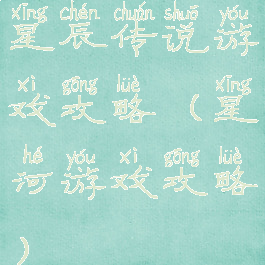 xīng chén chuán shuō yóu
星辰传说游
xì gōng lüè xīng
戏攻略(星
hé yóu xì gōng lüè
河游戏攻略
)